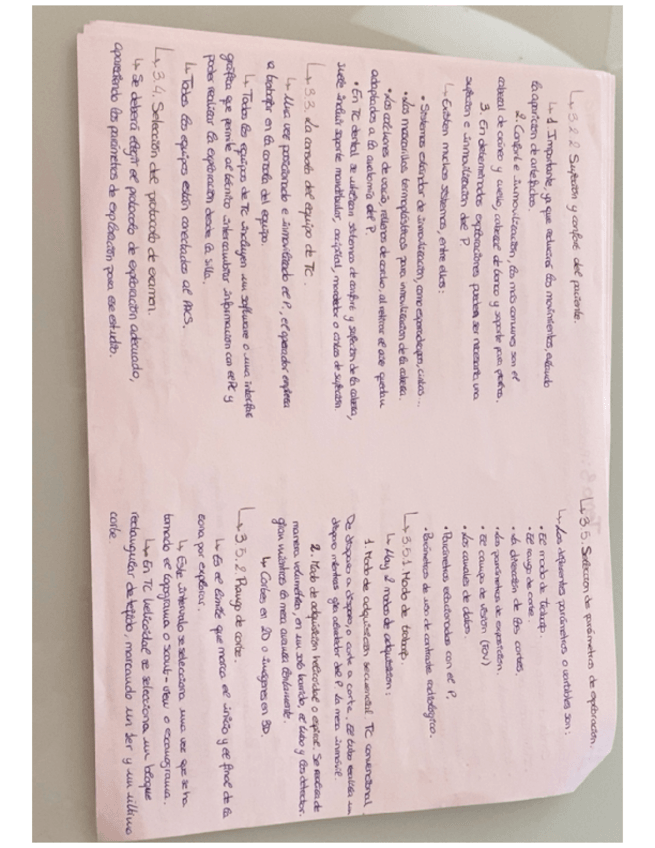 ↳ 3.2.2 Sujeción y confort del paciente.
↳ 1. Importante, ya que reducirá los movimientos, evitando
la aparición de artefactos.
2. Confort e inmovilización, los más comunes son el
cabezal de cráneo y cuello, cabezal de tronco y soporte para piernas.
3. En determinadas exploraciones puede ser necesaria una
sujeción e inmovilización del P.
↳ Existen muchos sistemas, entre ellos:
• Sistemas estándar de inmovilización, como esparadrapo, cintas...
• Las mascarillas termoplásticas para inmovilización de la cabeza.
• Los colchones de vacío, rellenos de corcho, al retirar el aire quedan
adaptados a la anatomía del P.
• En TC dental se utilizan sistemas de confort y sujeción de la cabeza,
suele incluir soporte mandibular, occipital, mordedor o cintas de sujeción.
↳ 3.3. La consola del equipo de TC.
↳ Una vez posicionado e inmovilizado el P, el operador empieza
a trabajar en la consola del equipo.
↳ Todos los equipos de TC incluyen un software o una interfaz
gráfica que permite al técnico intercambiar información con el PC y
poder realizar la exploración desde la silla.
↳ Todos los equipos están conectados al PACS.
↳ 3.4. Selección del protocolo de examen.
↳ Se deberá elegir el protocolo de exploración adecuado,
apareciendo los parámetros de exploración para ese estudio.
↳ 3.5. Selección de parámetros de exploración.
↳ Los diferentes parámetros o variables son:
• El modo de trabajo.
• El rango de corte.
• La dirección de los cortes.
• Los parámetros de exposición.
• El campo de visión (FOV)
• Los canales de datos.
• Parámetros relacionados con el P,
• Parámetros de uso de contraste radiológico.
↳ 3.5.1 Modo de trabajo.
↳ Hay 2 modos de adquisición:
1. Modo de adquisición secuencial. TC convencional.
De disparo a disparo, o corte a corte. El tubo realiza un
disparo mientras gira alrededor del P. La mesa inmóvil.
2. Modo de adquisición helicoidal o espiral. Se realiza de
manera volumétrica, en un solo barrido, el tubo y los detector.
giran mientras la mesa avanza lentamente.
↳ Cortes en 2D o imágenes en 3D.
↳ 3.5.2 Rango de corte.
↳ Es el límite que marca el inicio y el final de la
zona por explorar.
↳ Este intervalo se selecciona una vez que se ha
tomado el topograma o scout-view o escanograma.
↳ En TC helicoidal se selecciona un bloque
rectangular de tejido, marcando un 1er y un último
corte